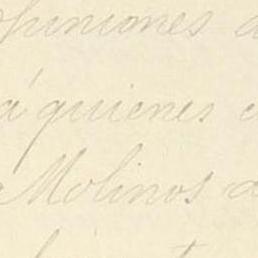 Opiniones
á quienes
Molinos